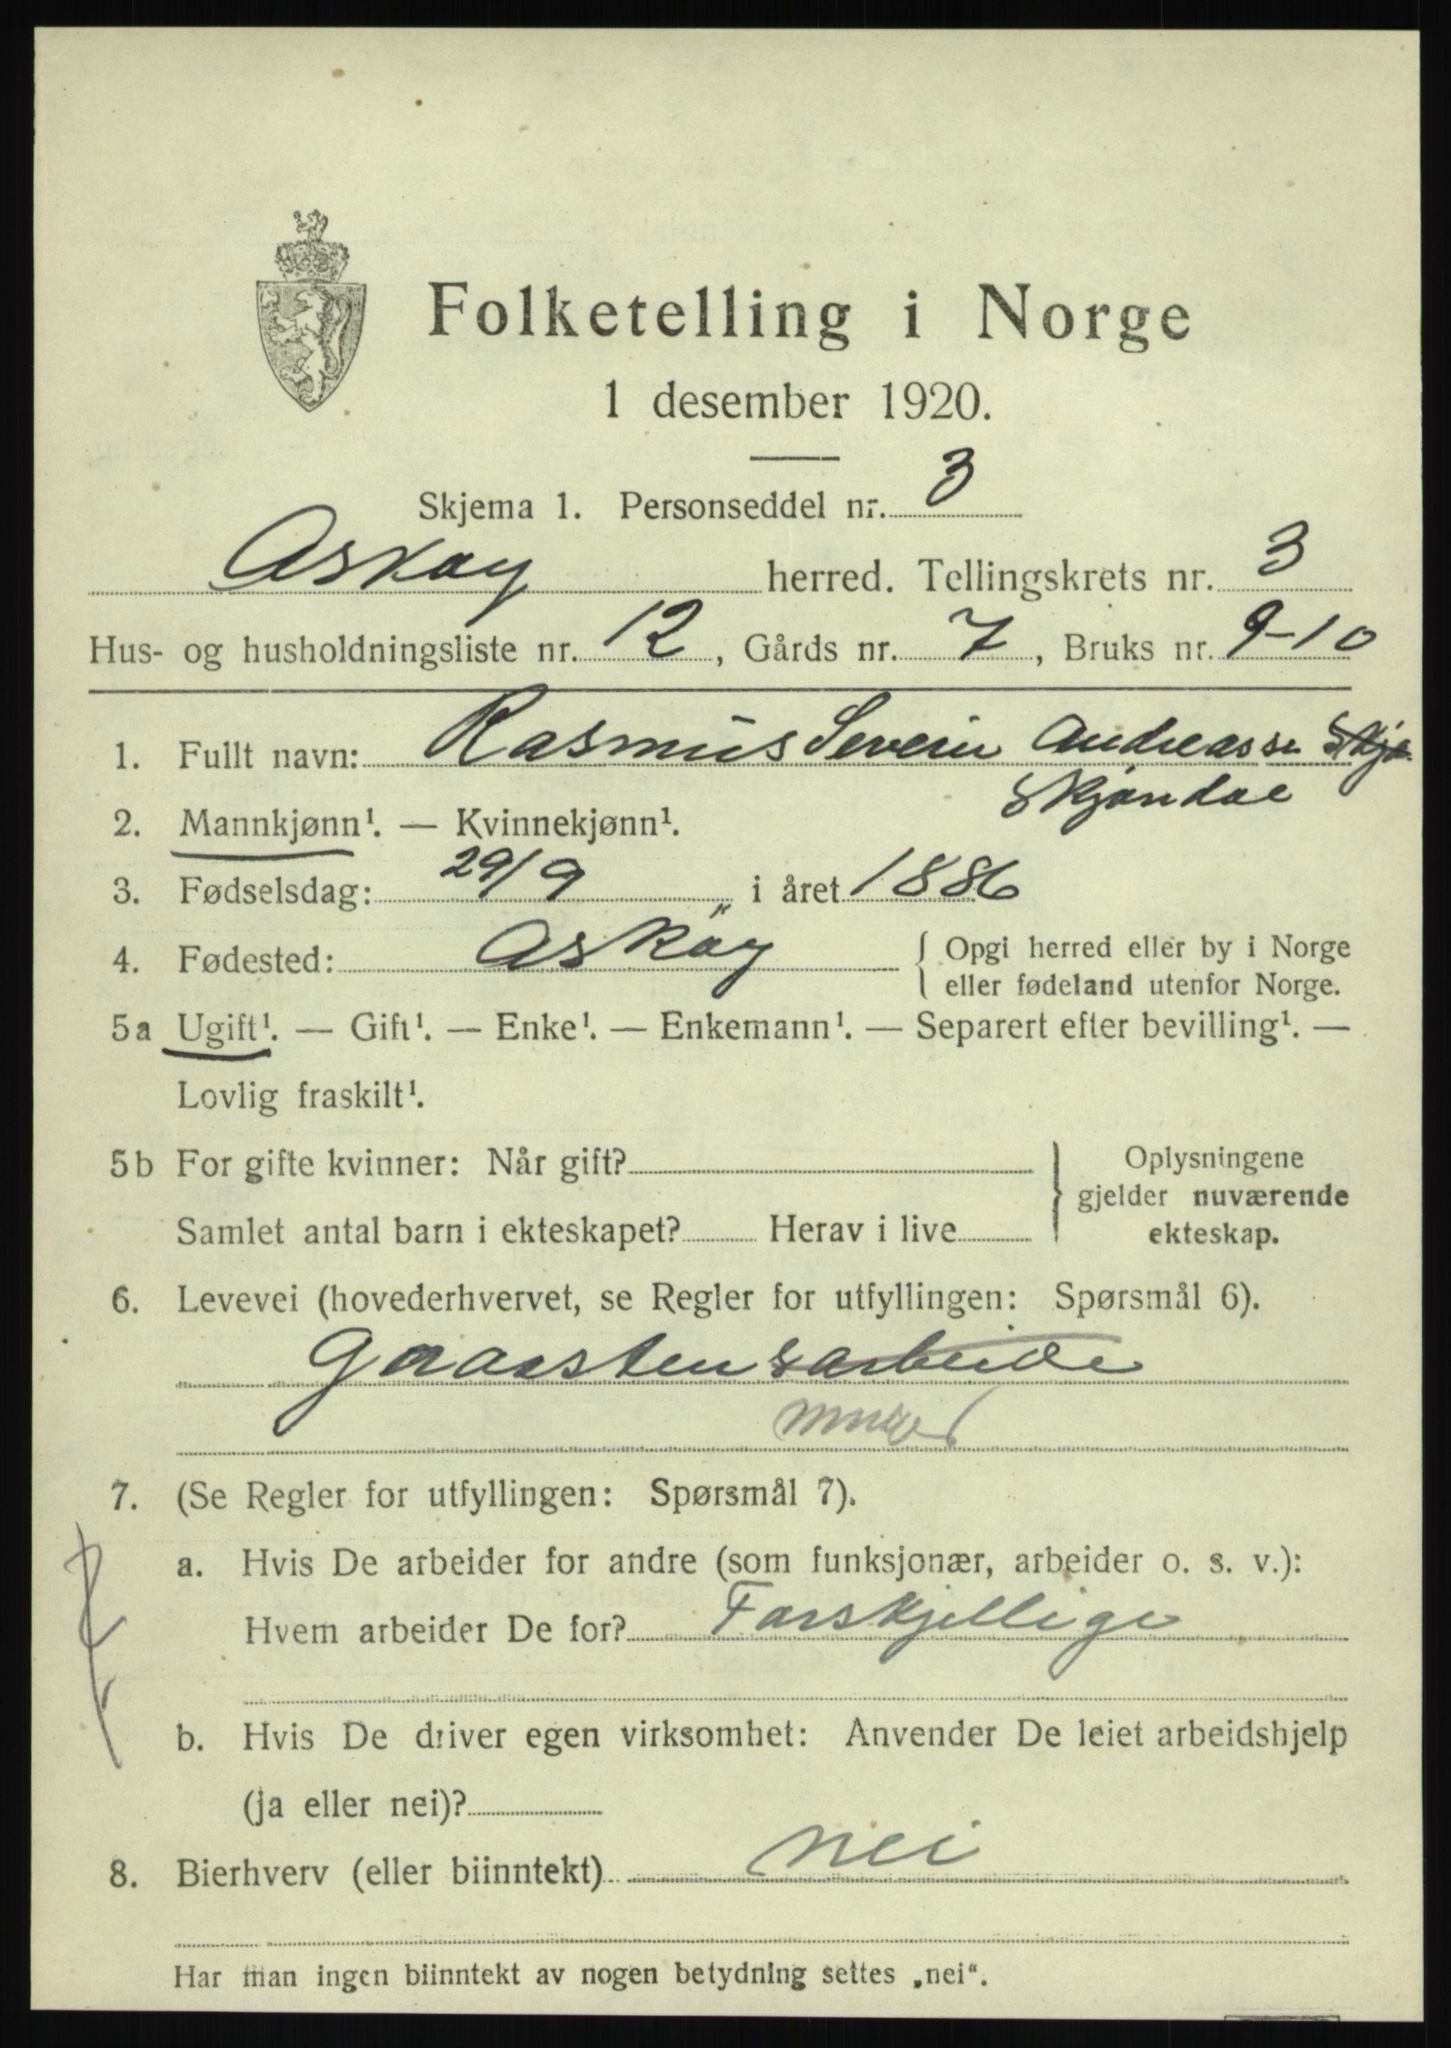 Folketelling i Norge
1 desember 1920.
Skjema 1. Personseddel nr. 3
Askøy herred. Tellingskrets nr. 3
Hus- og husholdningsliste nr. 12, Gårds nr. 7, Bruks nr. 9-10
1. Fullt navn: Rasmus Severin Andreassen Skjo
Skjøndal
2. Mannkjønn¹. — Kvinnekjønn¹.
3. Fødselsdag: 29/9 i året 1886
4. Fødested: Askøy { Opgi herred eller by i Norge
eller fødeland utenfor Norge.
5a Ugift¹. — Gift¹. — Enke¹. — Enkemann¹. — Separert efter bevilling¹. —
Lovlig fraskilt¹.
5b For gifte kvinner: Når gift? } Oplysningene
gjelder nuværende
Samlet antal barn i ekteskapet? Herav i live
ekteskap.
6. Levevei (hovederhvervet, se Regler for utfyllingen: Spørsmål 6).
Graastensarbeide
7. (Se Regler for utfyllingen: Spørsmål 7).
a. Hvis De arbeider for andre (som funksjonær, arbeider o. s. v.):
Hvem arbeider De for? Forskjellige
b. Hvis De driver egen virksomhet: Anvender De leiet arbeidshjelp
(ja eller nei)?
8. Bierhverv (eller biinntekt) nei
Har man ingen biinntekt av nogen betydning settes „nei“.